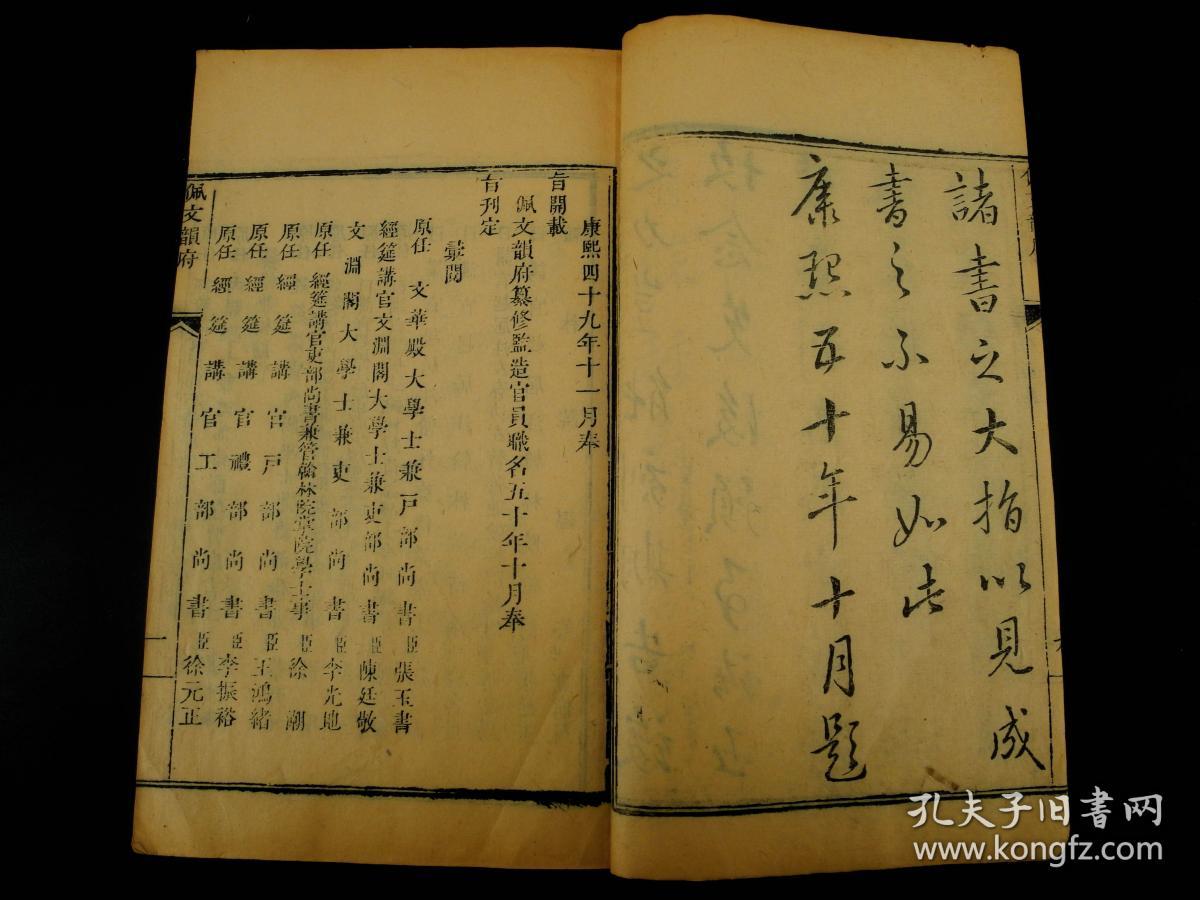 諸書之大指以見成
書之不易如此
康熙五十年十月題
康熙四十九年十一月奉
旨開載
佩文韻府纂修監造官員職名五十年十月奉
旨刊定
彙閱
原任文華殿大學士兼戶部尚書臣張玉書
經筵講官文淵閣大學士兼吏部尚書臣陳廷敬
文淵閣大學士兼吏部尚書臣李光地
原任經筵講官吏部尚書兼管翰林院掌院學士事臣徐潮
原任經筵講官戶部尚書臣王鴻緒
原任經筵講官禮部尚書臣李振裕
原任經筵講官工部尚書臣徐元正
佩文韻府
一
孔夫子旧书网
www.kongfz.com